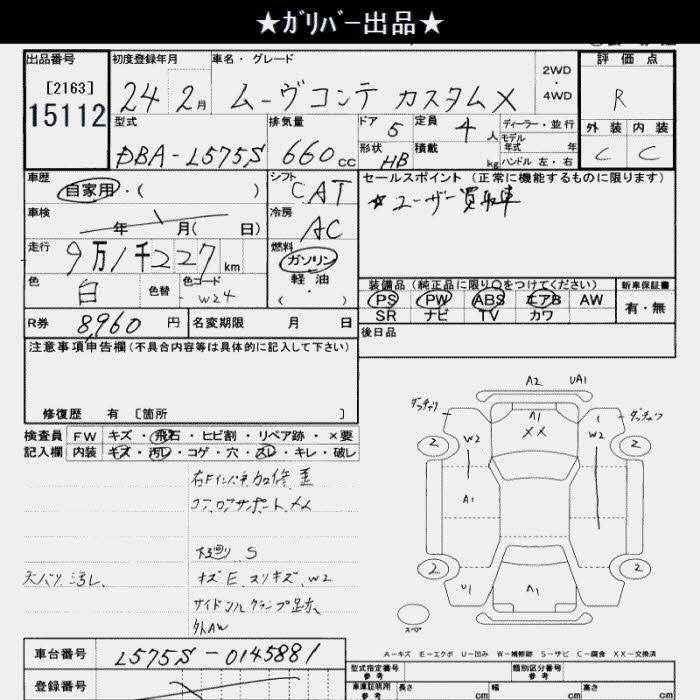 ★ガリバー出品★
出品番号 初度登録年月 車名・グレード 2WD・4WD 評価点
[2163]
15112
24 2月 ムーヴコンテ カスタムX R
型式 排気量 ドア 5 定員 4人 ディーラー・並行 外装 内装
モデル年式 年
DBA-L575S 660cc 形状 HB 積載 kg ハンドル 左・右 C C
車歴 自家用・( ) シフト CAT セールスポイント (正常に機能するものに限ります)
☆ユーザー買取車
車検 年 月( 日) 冷房 AC
走行 9万1千227km 燃料 ガソリン
軽油
・
( )
色 白 色替 色コード W24
装備品 (純正品に限り○をつけてください) 新車保証書
PS PW ABS エアB AW 有・無
SR ナビ TV カワ
R券 8,960円 名変期限 月 日 後日品
注意事項申告欄(不具合内容等は具体的に記入して下さい)
修復歴 有 [箇所 ]
検査員 FW キズ・飛石・ヒビ割・リペア跡・×要
記入欄 内装 キズ・汚レ・コゲ・穴・スレ・キレ・破レ
右Fインパネ加修歪
コアロアサポートメ
下廻り S
天バリ汚レ、 キズE、スリキズ、W2
サイドシルクランプ跡、
外AW
A2 UA1
A1
XX
W2 W2
2 2
A1
2 2
U1 A1
スペア
A-キズ E-エクボ U-凹み W-補修跡 S-サビ C-腐食 XX-交換済
車台番号 L575S-0145881
登録番号
型式指定番号 参考 類別区分番号 参考
車庫証明用 参考 長さ cm 幅 cm 高さ cm